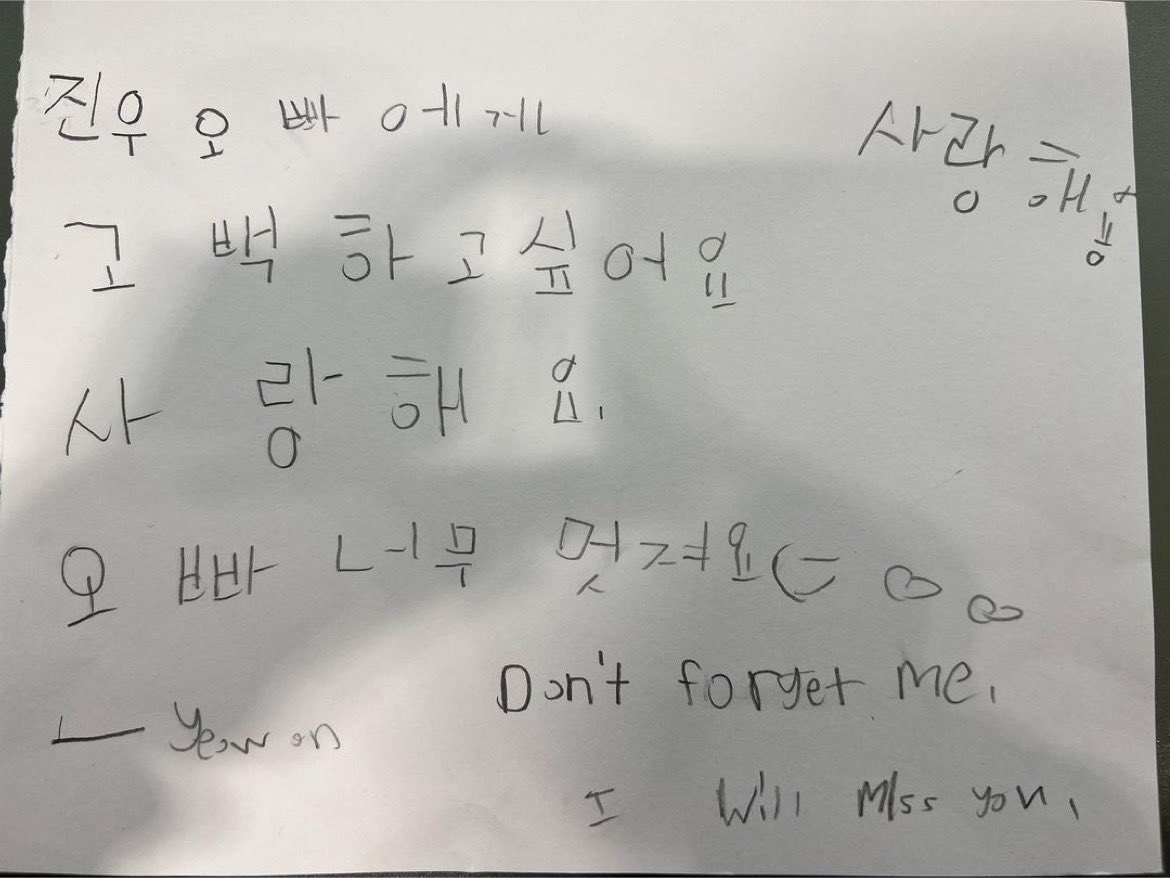 진우 오빠에게
사랑해용
고백하고싶어요
사랑해요.
오빠 너무 멋져요
Don't forget me.
- Yeowon
I will Miss you.